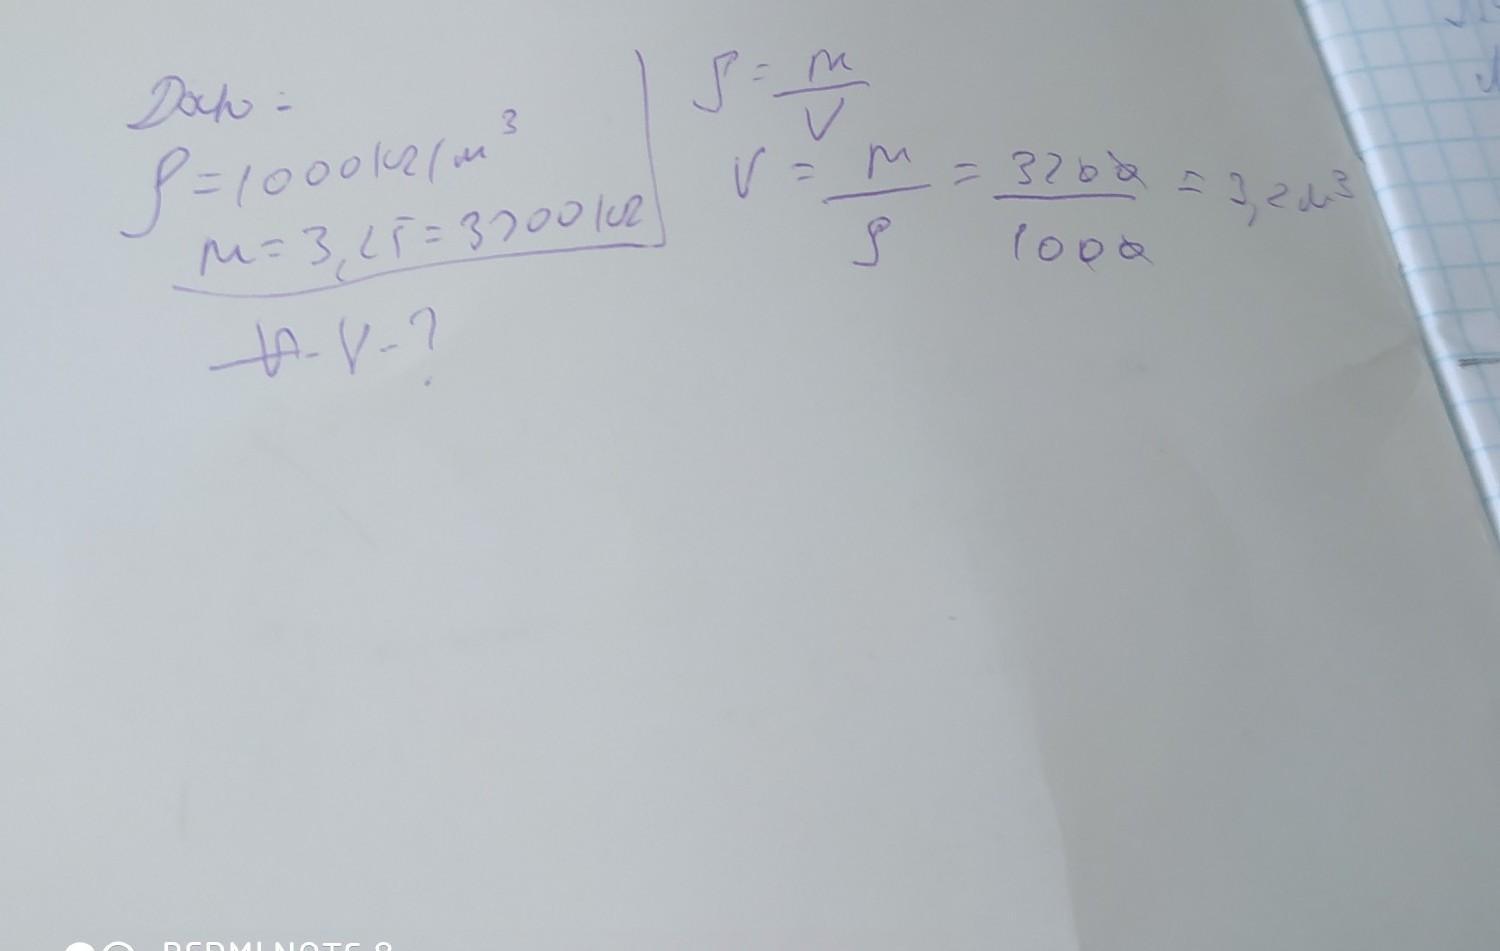 Дано:
ρ = 1000 кг/м³
m = 3,2т = 3200 кг
V - ?
ρ = m/V
V = m/ρ = 3200/1000 = 3,2 м³
REDMI NOTE 8